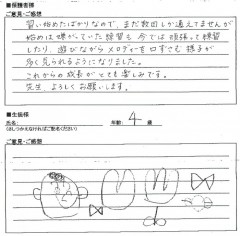 ■保護者様
ご意見・ご感想
習い始めたばかりなので、まだ数回しか通えてませんが
始めは嫌がっていた練習も今では頑張って練習
したり、遊びながらメロディーを口ずさむ様子が
多く見られるようになりました。
これからの成長がとても楽しみです。
先生、よろしくお願いします。
■生徒様
氏名: 年齢: 4 歳
(さしつかえなければご記名ください)
ご意見・ご感想